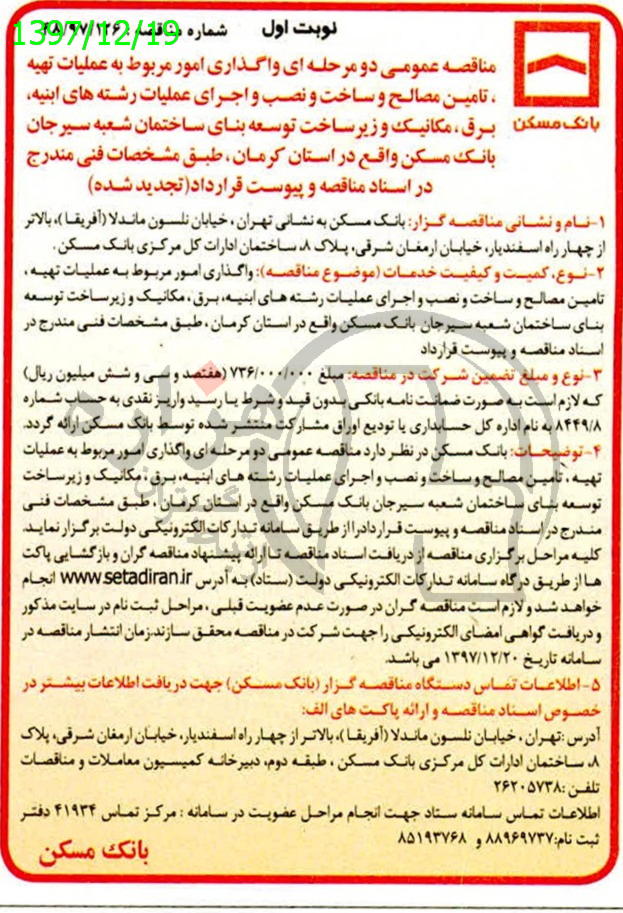 1397/12/19
نوبت اول
شماره مناقصه:
بانک مسکن
مناقصه عمومی دو مرحله ای واگذاری امور مربوط به عملیات تهیه
، تامین مصالح و ساخت و نصب و اجرای عملیات رشته های ابنیه،
برق ، مکانیک و زیرساخت توسعه بنای ساختمان شعبه سیرجان
بانک مسکن واقع در استان کرمان ، طبق مشخصات فنی مندرج
در اسناد مناقصه و پیوست قرارداد(تجدید شده)
۱-نام و نشانی مناقصه گزار: بانک مسکن به نشانی تهران ، خیابان نلسون ماندلا (آفریقا )، بالاتر
از چهار راه اسفندیار، خیابان ارمغان شرقی، پلاک ۸، ساختمان ادارات کل مرکزی بانک مسکن .
۲-نوع، کمیت و کیفیت خدمات (موضوع مناقصه): واگذاری امور مربوط به عملیات تهیه ،
تامین مصالح و ساخت و نصب و اجرای عملیات رشته های ابنیه، برق ، مکانیک و زیرساخت توسعه
بنای ساختمان شعبه سیرجان بانک مسکن واقع در استان کرمان ، طبق مشخصات فنی مندرج در
اسناد مناقصه و پیوست قرارداد
۳-نوع و مبلغ تضمین شرکت در مناقصه: مبلغ ۷۳۶/۰۰۰/۰۰۰ (هفتصد و سی و شش میلیون ریال)
که لازم است به صورت ضمانت نامه بانکی بدون قید و شرط یا رسید واریز نقدی به حساب شماره
۸۴۴۹/۸ به نام اداره کل حسابداری یا تودیع اوراق مشارکت منتشر شده توسط بانک مسکن ارائه گردد.
۴-توضیحات: بانک مسکن در نظر دارد مناقصه عمومی دو مرحله ای واگذاری امور مربوط به عملیات
تهیه ، تامین مصالح و ساخت و نصب و اجرای عملیات رشته های ابنیه، برق ، مکانیک و زیرساخت
توسعه بنای ساختمان شعبه سیرجان بانک مسکن واقع در استان کرمان ، طبق مشخصات فنی
مندرج در اسناد مناقصه و پیوست قراردادرا از طریق سامانه تدارکات الکترونیکی دولت برگزار نماید.
کلیه مراحل برگزاری مناقصه از دریافت اسناد مناقصه تا ارائه پیشنهاد مناقصه گران و بازگشایی پاکت
ها از طریق درگاه سامانه تدارکات الکترونیکی دولت (ستاد) به آدرس www.setadiran.ir انجام
خواهد شد و لازم است مناقصه گران در صورت عدم عضویت قبلی ، مراحل ثبت نام در سایت مذکور
و دریافت گواهی امضای الکترونیکی را جهت شرکت در مناقصه محقق سازند.زمان انتشار مناقصه در
سامانه تاریخ ۱۳۹۷/۱۲/۲۰ می باشد.
۵-اطلاعات تماس دستگاه مناقصه گزار (بانک مسکن) جهت دریافت اطلاعات بیشتر در
خصوص اسناد مناقصه و ارائه پاکت های الف:
آدرس :تهران ، خیابان نلسون ماندلا (آفریقا )، بالاتر از چهار راه اسفندیار، خیابان ارمغان شرقی، پلاک
۸، ساختمان ادارات کل مرکزی بانک مسکن ، طبقه دوم، دبیرخانه کمیسیون معاملات و مناقصات
تلفن :۲۶۲۰۵۷۳۸
اطلاعات تماس سامانه ستاد جهت انجام مراحل عضویت در سامانه : مرکز تماس ۴۱۹۳۴ دفتر
ثبت نام:۸۸۹۶۹۷۳۷ و ۸۵۱۹۳۷۶۸
بانک مسکن